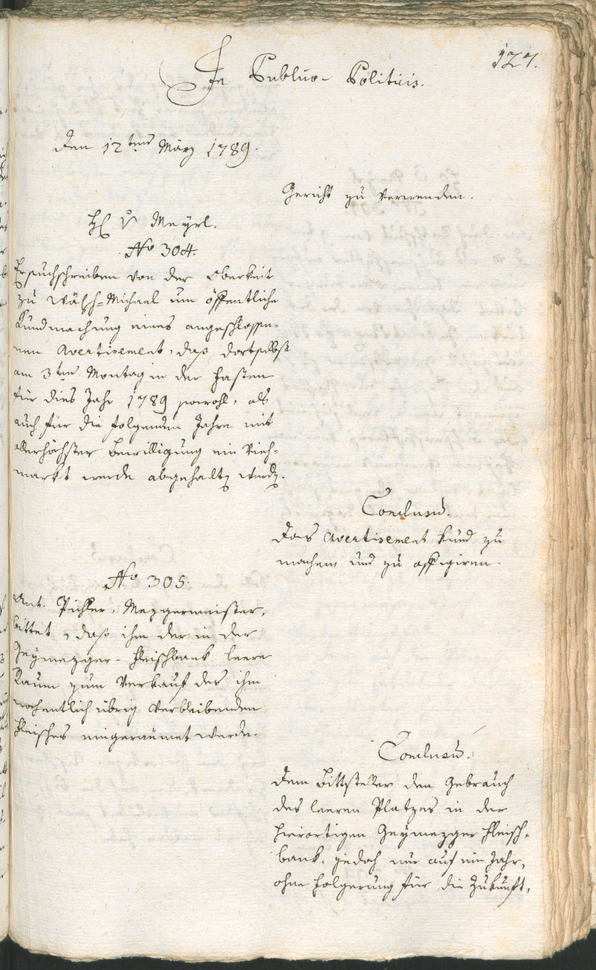 127.
In Publico-Politicis.
Den 12ten März 1789.
Gericht zu verwenden.
H. v. Mayrl.
No 304.
Ersuchschreiben von der Oberkeit
zu Wälsch-Michael um öffentliche
Kundmachung eines angeschlosse-
nen Avertisement, daß dortselbst
am 3ten Montag in der Fasten
für dies Jahr 1789 sowohl, als
auch für die folgenden Jahre mit
allerhöchster Bewilligung ein Vieh-
markt werde abgehalten werden.
Conclusum.
Das Avertisement kund zu
machen und zu affigiren.
No 305.
Ant. Pichler, Mezgermeister,
bittet, daß ihm der in der
Geymezger-Fleischbank leere
Raum zum Verkauf des ihm
wochentlich übrig verbleibenden
Fleisches eingeraumet werde.
Conclusum.
Dem Bittsteller den Gebrauch
des leeren Platzes in der
hierortigen Geymezger Fleisch-
bank, jedoch nur auf ein Jahr,
ohne Folgerung für die Zukunft,